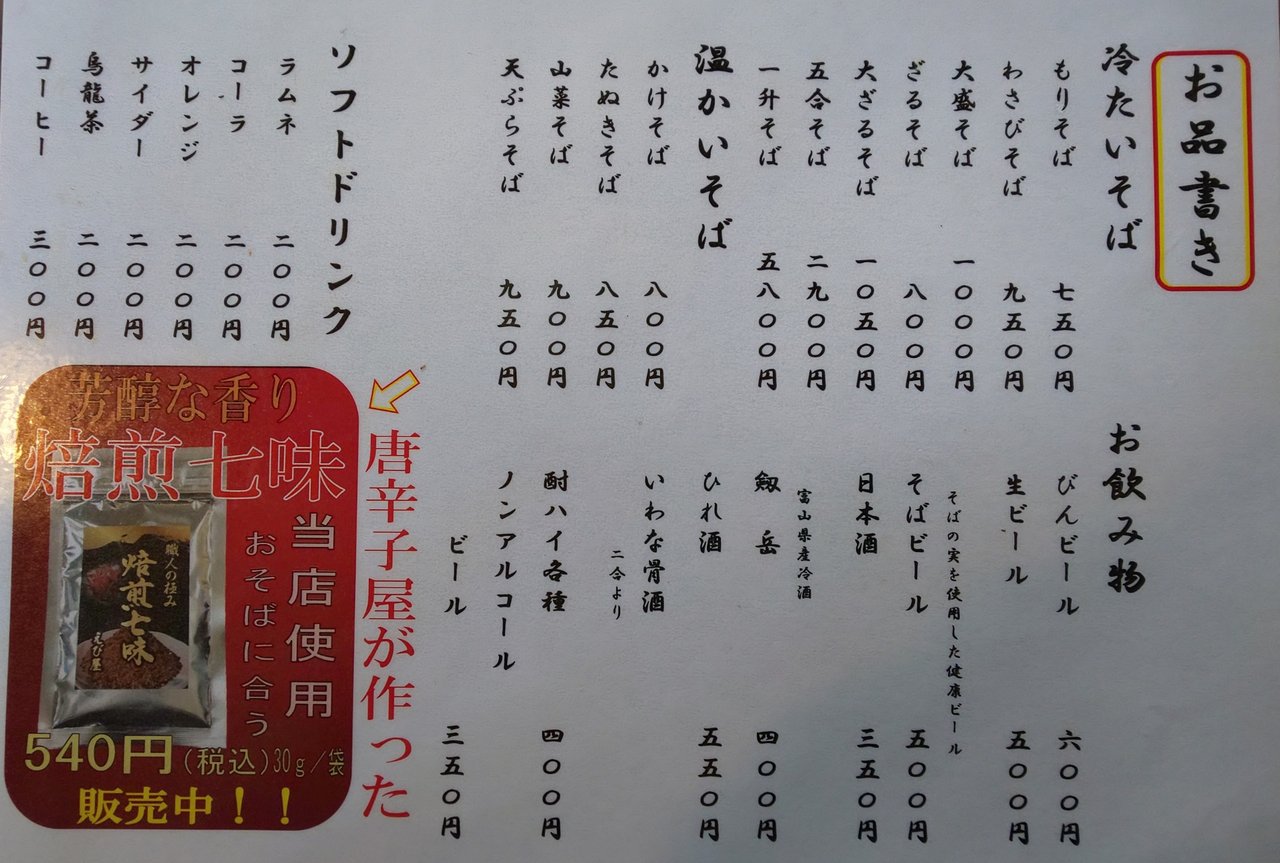 お品書き
冷たいそば
もりそば 七五〇円
わさびそば 九五〇円
大盛そば 一〇〇〇円
ざるそば 八〇〇円
大ざるそば 一〇五〇円
五合そば 二九〇〇円
一升そば 五八〇〇円
温かいそば
かけそば 八〇〇円
たぬきそば 八五〇円
山菜そば 九〇〇円
天ぷらそば 九五〇円
ソフトドリンク
ラムネ 二〇〇円
コーラ 二〇〇円
オレンジ 二〇〇円
サイダー 二〇〇円
烏龍茶 二〇〇円
コーヒー 三〇〇円
お飲み物
びんビール 六〇〇円
生ビール 五〇〇円
そばの実を使用した健康ビール
そばビール 五〇〇円
日本酒 三五〇円
富山県産冷酒
剱岳 四〇〇円
ひれ酒 五五〇円
いわな骨酒
二合より
酎ハイ各種 四〇〇円
ノンアルコール
ビール 三五〇円
唐辛子屋が作った
芳醇な香り
焙煎七味
当店使用
おそばに合う
職人の極み
焙煎七味
えび屋
540円(税込)30g/袋
販売中!!